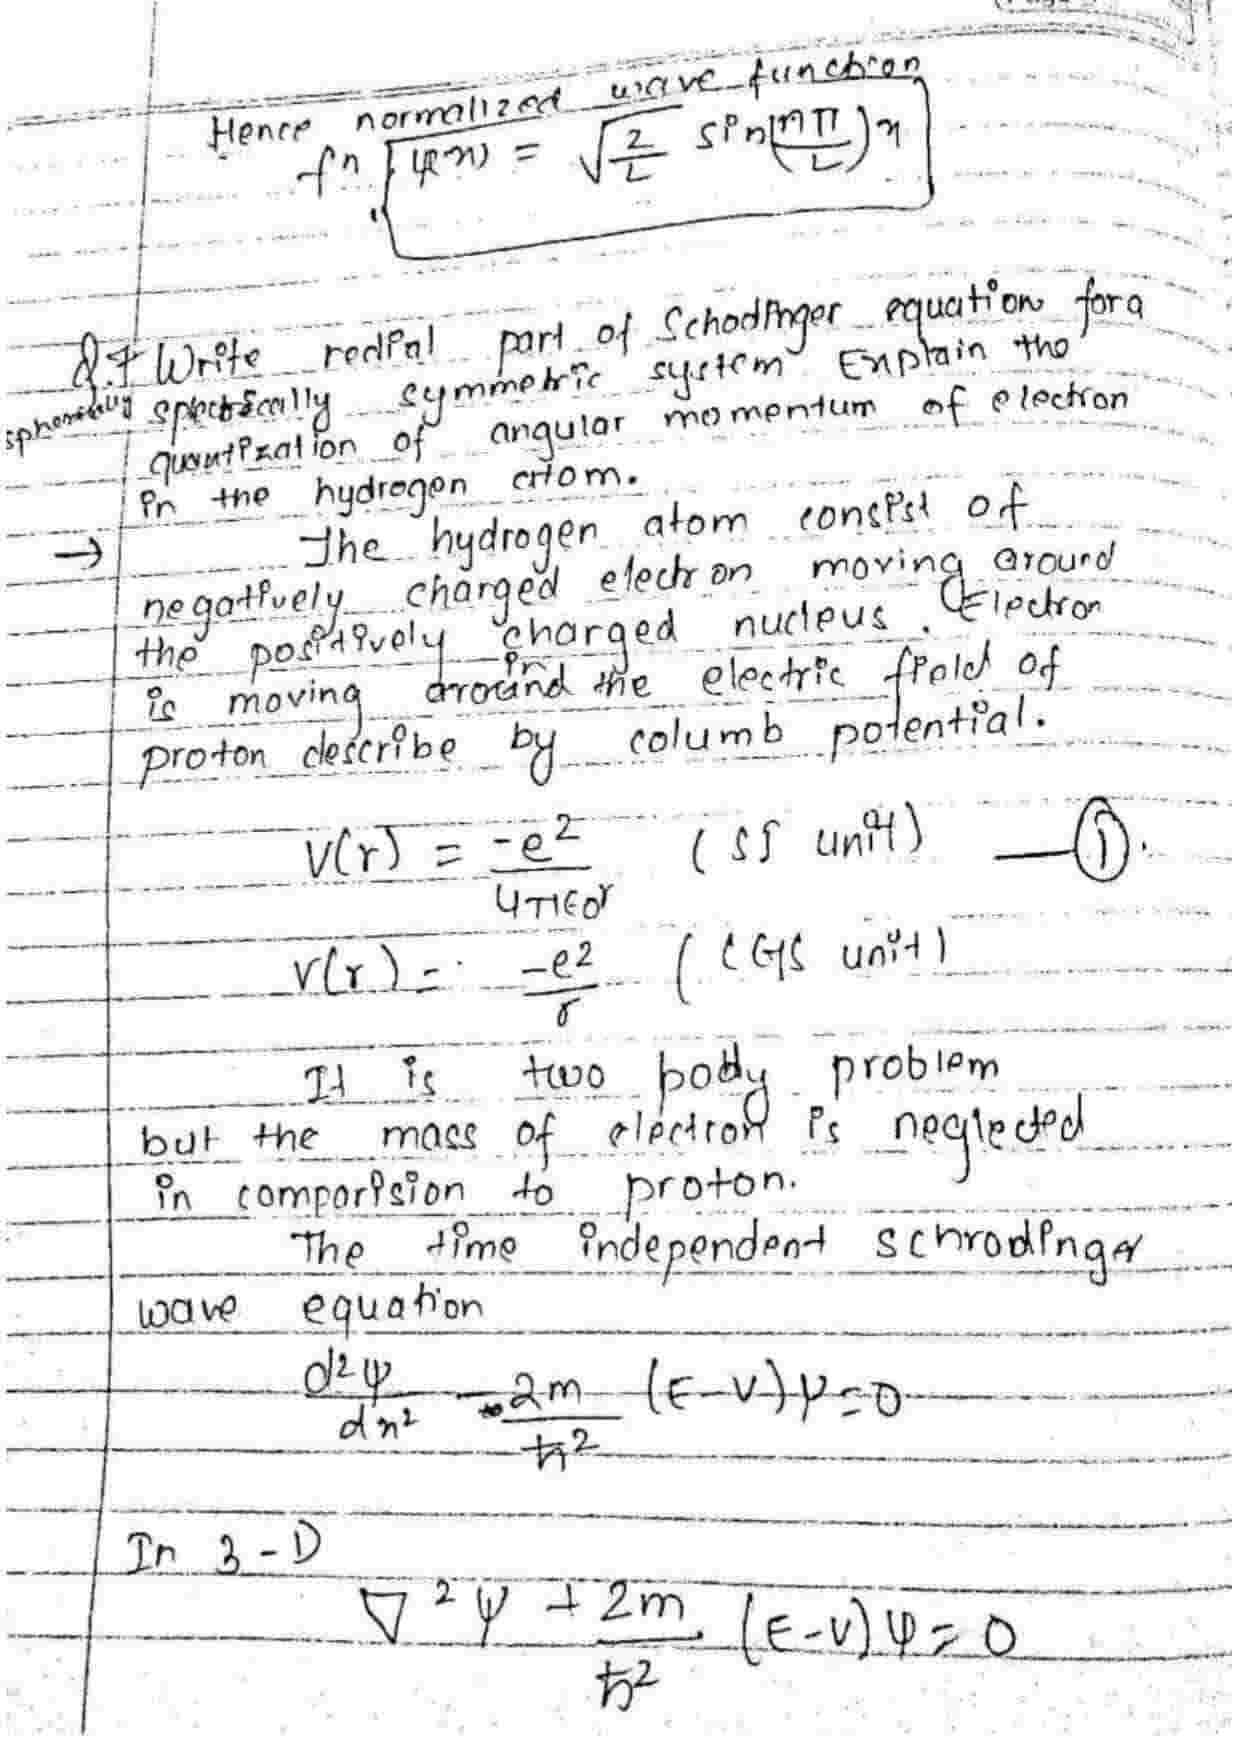 Hence normalized wave function
fn ψ(x) = √2/L sin(nπ/L)x
Q.7 Write redial part of Schodinger equation for a
spherically spectrically symmetric system Explain the
quantization of angular momentum of electron
in the hydrogen atom.
→ The hydrogen atom consist of
negatively charged electron moving around
the positively charged nucleus. Electron
is moving around in the electric field of
proton describe by columb potential.
V(r) = -e²/4π∈0r (SI unit) — ①.
V(r) = -e²/r (CGS unit)
It is two body problem
but the mass of electron is neglected
in comparision to proton.
The time independent schrodinger
wave equation
d²ψ/dx² - 2m/ħ² (E-V)ψ=0
In 3-D
∇²ψ + 2m/ħ² (E-V)ψ = 0